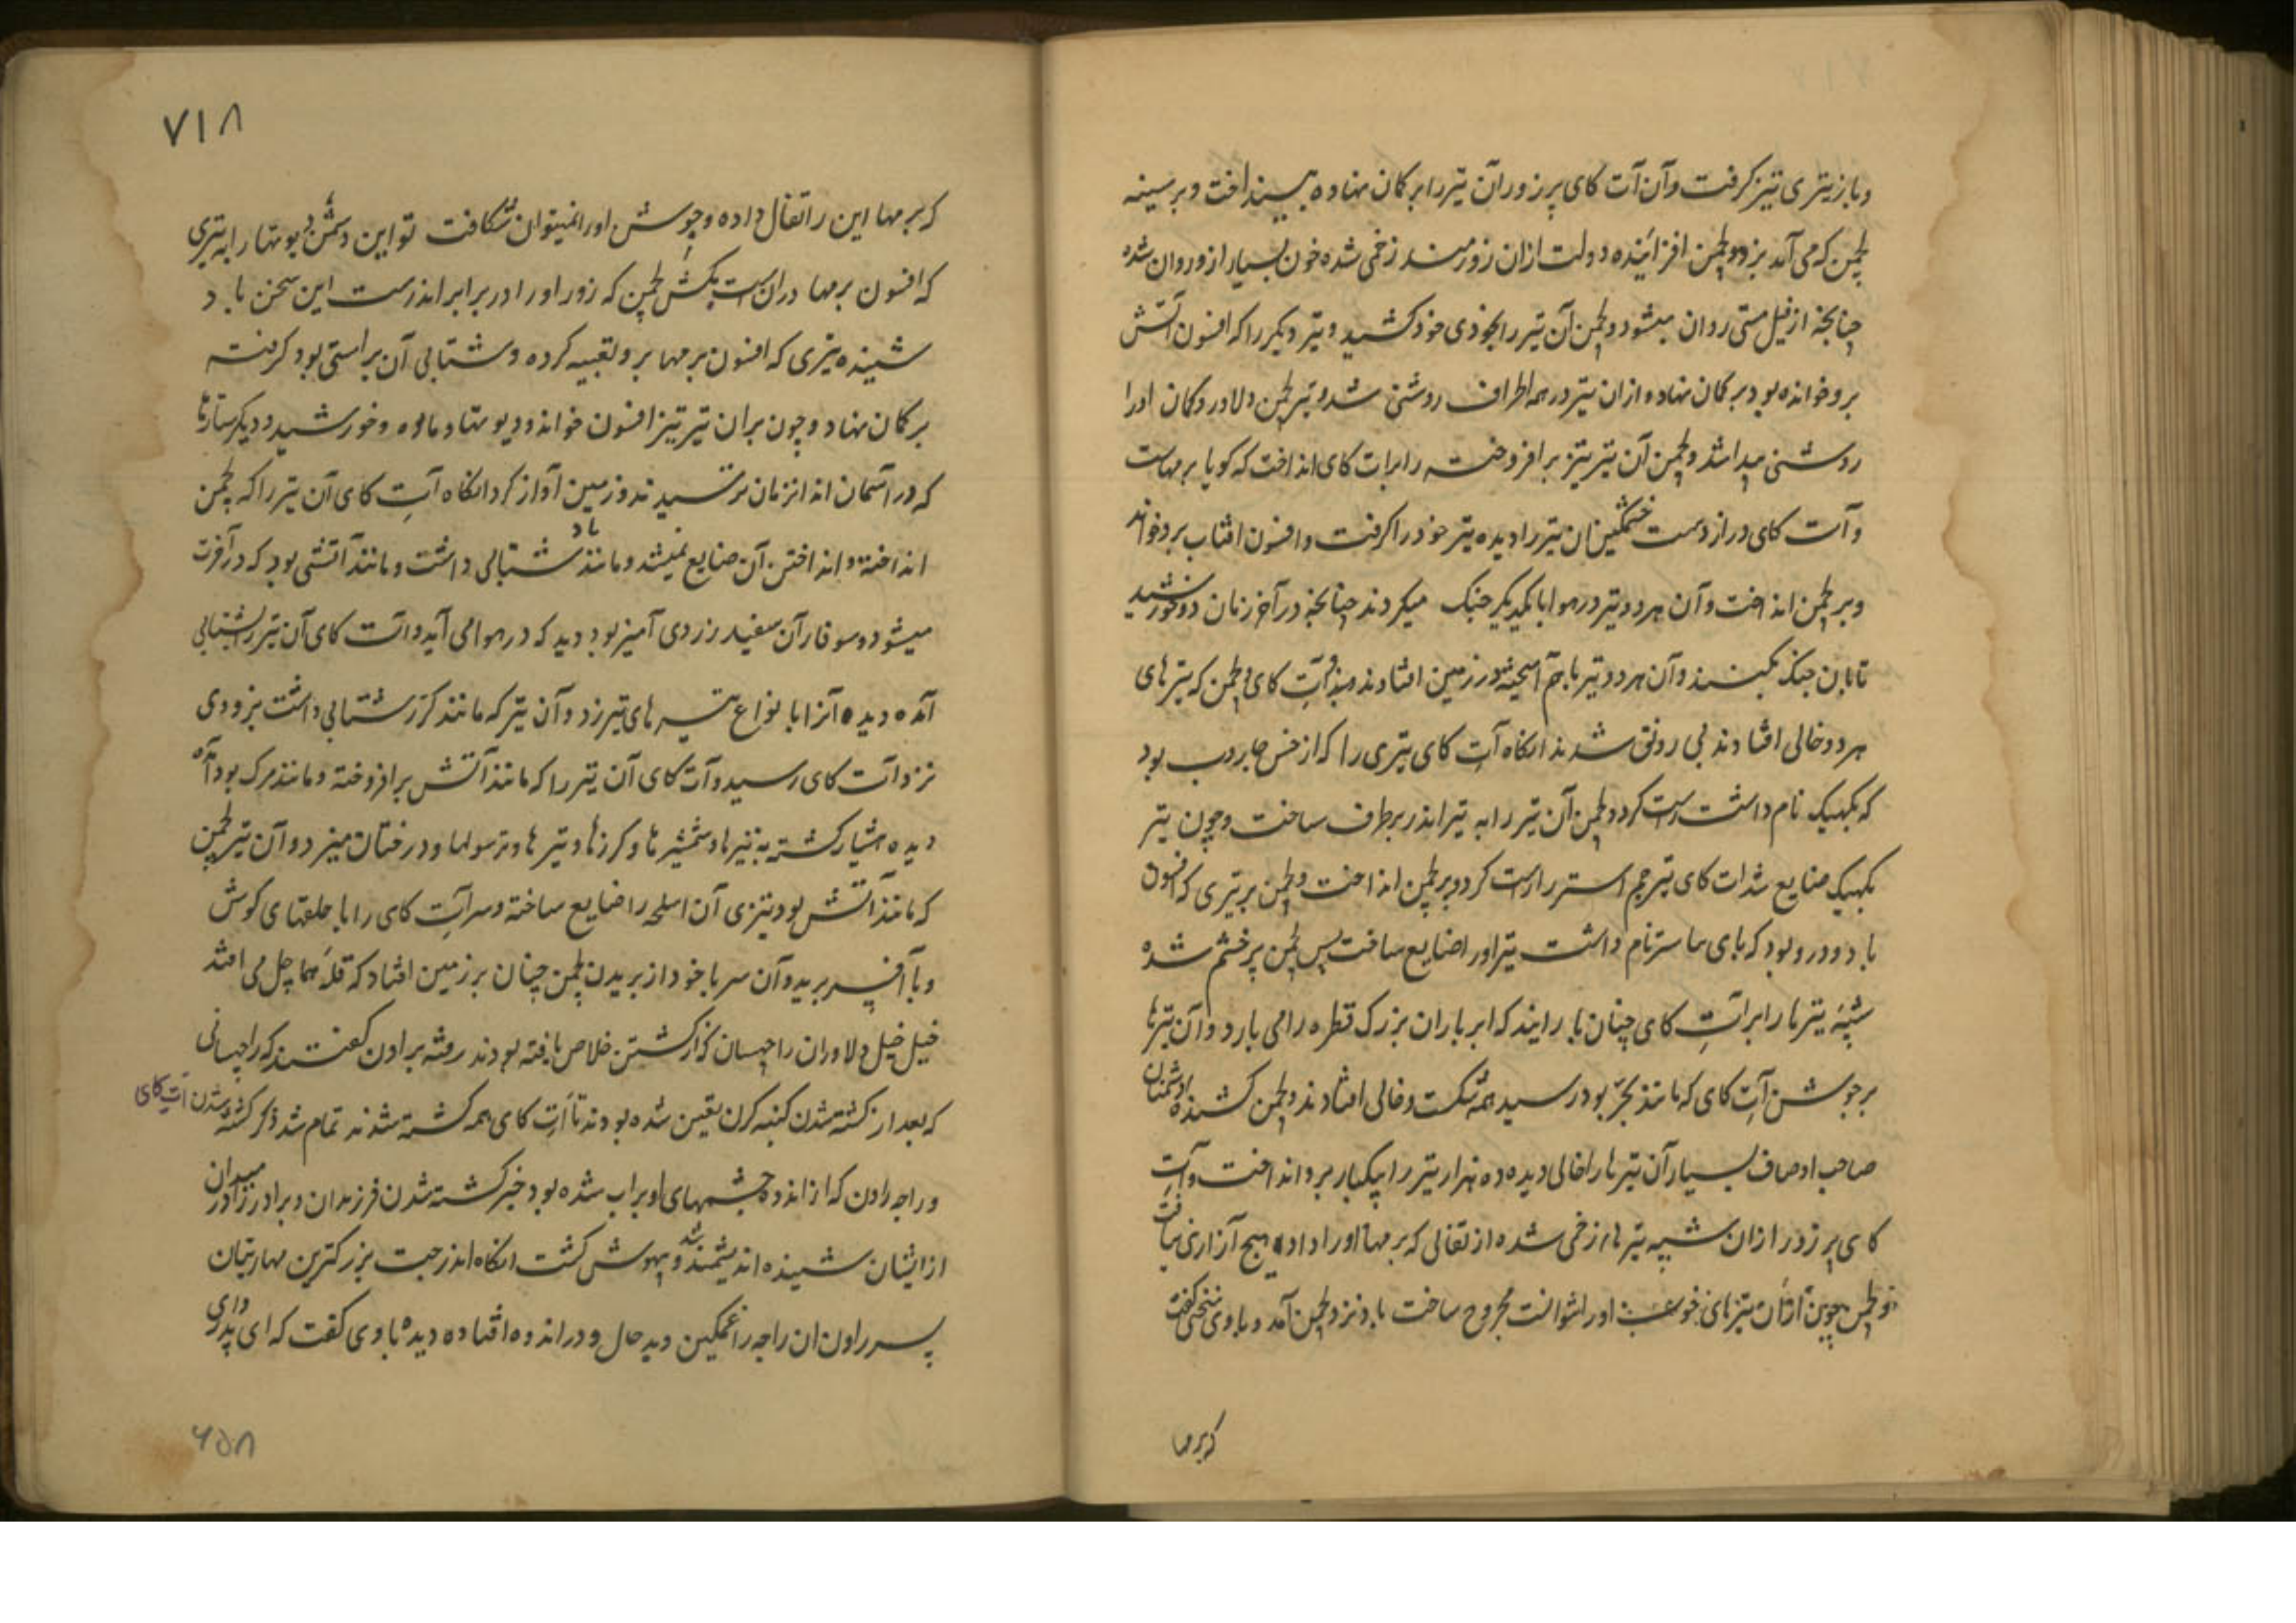 وباز تیری تیز کرفت و آن آت کای پر زور آن تیر را بر کمان نهاده بینداخت و بر سینه
لچمن که می آمد بزد و لچمن افزاینده دولت ازان زورمند زخمی شده خون بسیار ازو روان شده
چنانچه از فیل مستی روان میشود و لچمن آن تیر را بخودی خود کشید و تیر دیکر را که افسون آتش
برو خوانده بود بر کمان نهاده ازان تیر در همه اطراف روشنی شد و تیر لچمن دلاور و کمان او را
روشنی پیدا شد و لچمن آن تیر تیز بر افروخته را بر آت کای انداخت که کویا بر مهاست
و آت کای دراز دست خشمکین ان تیر را دیده تیر خود را کرفت و افسون افتاب برو خواند
و بر لچمن انداخت و آن هر دو تیر در هوا با یکدیکر جنک میکردند چنانچه در آخر زمان دو خورشید
تابان جنک بکنند و آن هر دو تیر با هم آمیخته در زمین افتادند و آت کای و لچمن که تیر های
هر دو خالی افتادند بی رونق شدند انکاه آت کای تیری را که از خس جاروب بود
که یکهیک نام داشت راست کرد و لچمن آن تیر را به تیر اندر بر طرف ساخت و چون تیر
یکهیک ضایع شد آت کای تیر جم استر را راست کرد و بر لچمن انداخت و لچمن بر تیری که افسون
باد و درو بود که بای ما ستر نام داشت تیر او را ضایع ساخت پس لچمن پر خشم شده
شیبه تیر ها را بر آت کای چنان بارانید که ابر باران بزرک قطره را می بارد و آن تیر ها
بر جوشن آت کای که مانند بجر بود رسید همه شکست و خالی افتادند و لچمن کشنده دشمنان
صاحب اوصاف بسیار آن تیر ها را خالی دیده ده هزار تیر را بیکبار برو انداخت و آت
کای پر زور ازان شیبه تیر ها زخمی شده از تفال که بر مها او را داده هیچ آزاری نیافت
و لچمن چون ازان تیر های خوب او را نتوانست مجروح ساخت باد نزد لچمن آمد و با وی سخن کفت
که بر مها
۷۱۸
که بر مها این را تفال داده و جوشن او را نمیتوان شکافت تو این دشمن دیوتها را به تیری
که افسون بر مها دران است بکش لچمن که زور او را در برابر اندرست این سخن باد
شنیده تیری که افسون بر مها برو تعبیه کرده و شتابی آن براستی بود کرفته
بر کمان نهاد و چون بران تیر تیز افسون خواند دیوتها و ماه و خورشید و دیکر ستارها
که در آسمان اند انزمان ترسیدند و زمین آواز کرد انکاه آت کای آن تیر را که لچمن
انداخته و انداختن آن ضایع نمیشد و مانند باد شتابی داشت و مانند آتشی بود که در آخرت
میشود و سوفار آن سفید زردی آمیز بود دید که در هوا می آید و آت کای آن تیر را بشتابی
آمده دیده آنرا با نواع تیر های تیز زد و آن تیر که مانند کرز شتابی داشت بزودی
نزد آت کای رسید و آت کای آن تیر را که مانند آتش بر افروخته و مانند مرک بود آمده
دیده هشیار کشته به نیزها و شمشیر ها و کرزها و تیر ها و ترسولها و درختان میزد و آن تیر لچمن
که مانند آتش بود و تیزی آن اسلحه را ضایع ساخته و سر آت کای را با حلقهای کوش
و با افسر برید و آن سر با خود از بریدن لچمن چنان بر زمین افتاد که قله هما چل می افتد
خیل خیل دلاوران راچهسان که از کشتن خلاص یافته بودند رفته براون کفتند که راچهسانی
که بعد از کشته شدن کنبه کرن تعین شده بودند تا آت کای همه کشته شدند تمام شد ذکر کشته شدن آت کای
و راجه راون که از اندوه چشمهای او پر اب شده بود خبر کشته شدن فرزندان و برادرزاده در میدان
از ایشان شنیده اندیشمند شده و بیهوش کشت انکاه اندر جیت بزرکترین مهارتیان
پسر راون ان راجه را غمکین دید حال و در اندوه افتاده دیده با وی کفت که ای پدر وای
۶۵۸